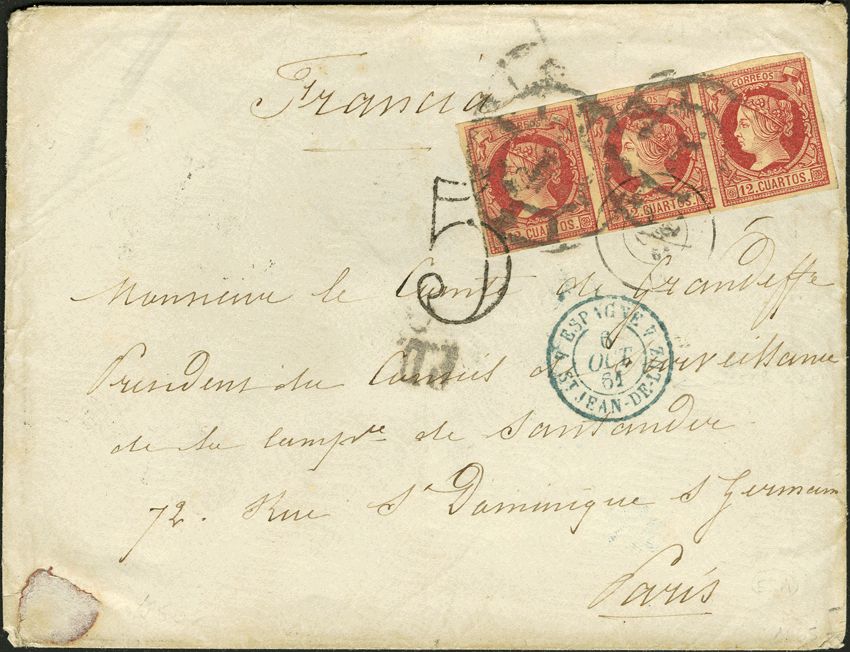 Francia
CORREOS
CORREOS
12 CUARTOS.
12 CUARTOS.
12 CUARTOS.
5
P.D.
Monsieur le Comte de Grandeffe
ESPAGNE
6
OCT
61
ST JEAN-DE-LUZ
President du Conseil de Surveillance
de la Compie de Santander
72. Rue St Dominique St Germain
Paris